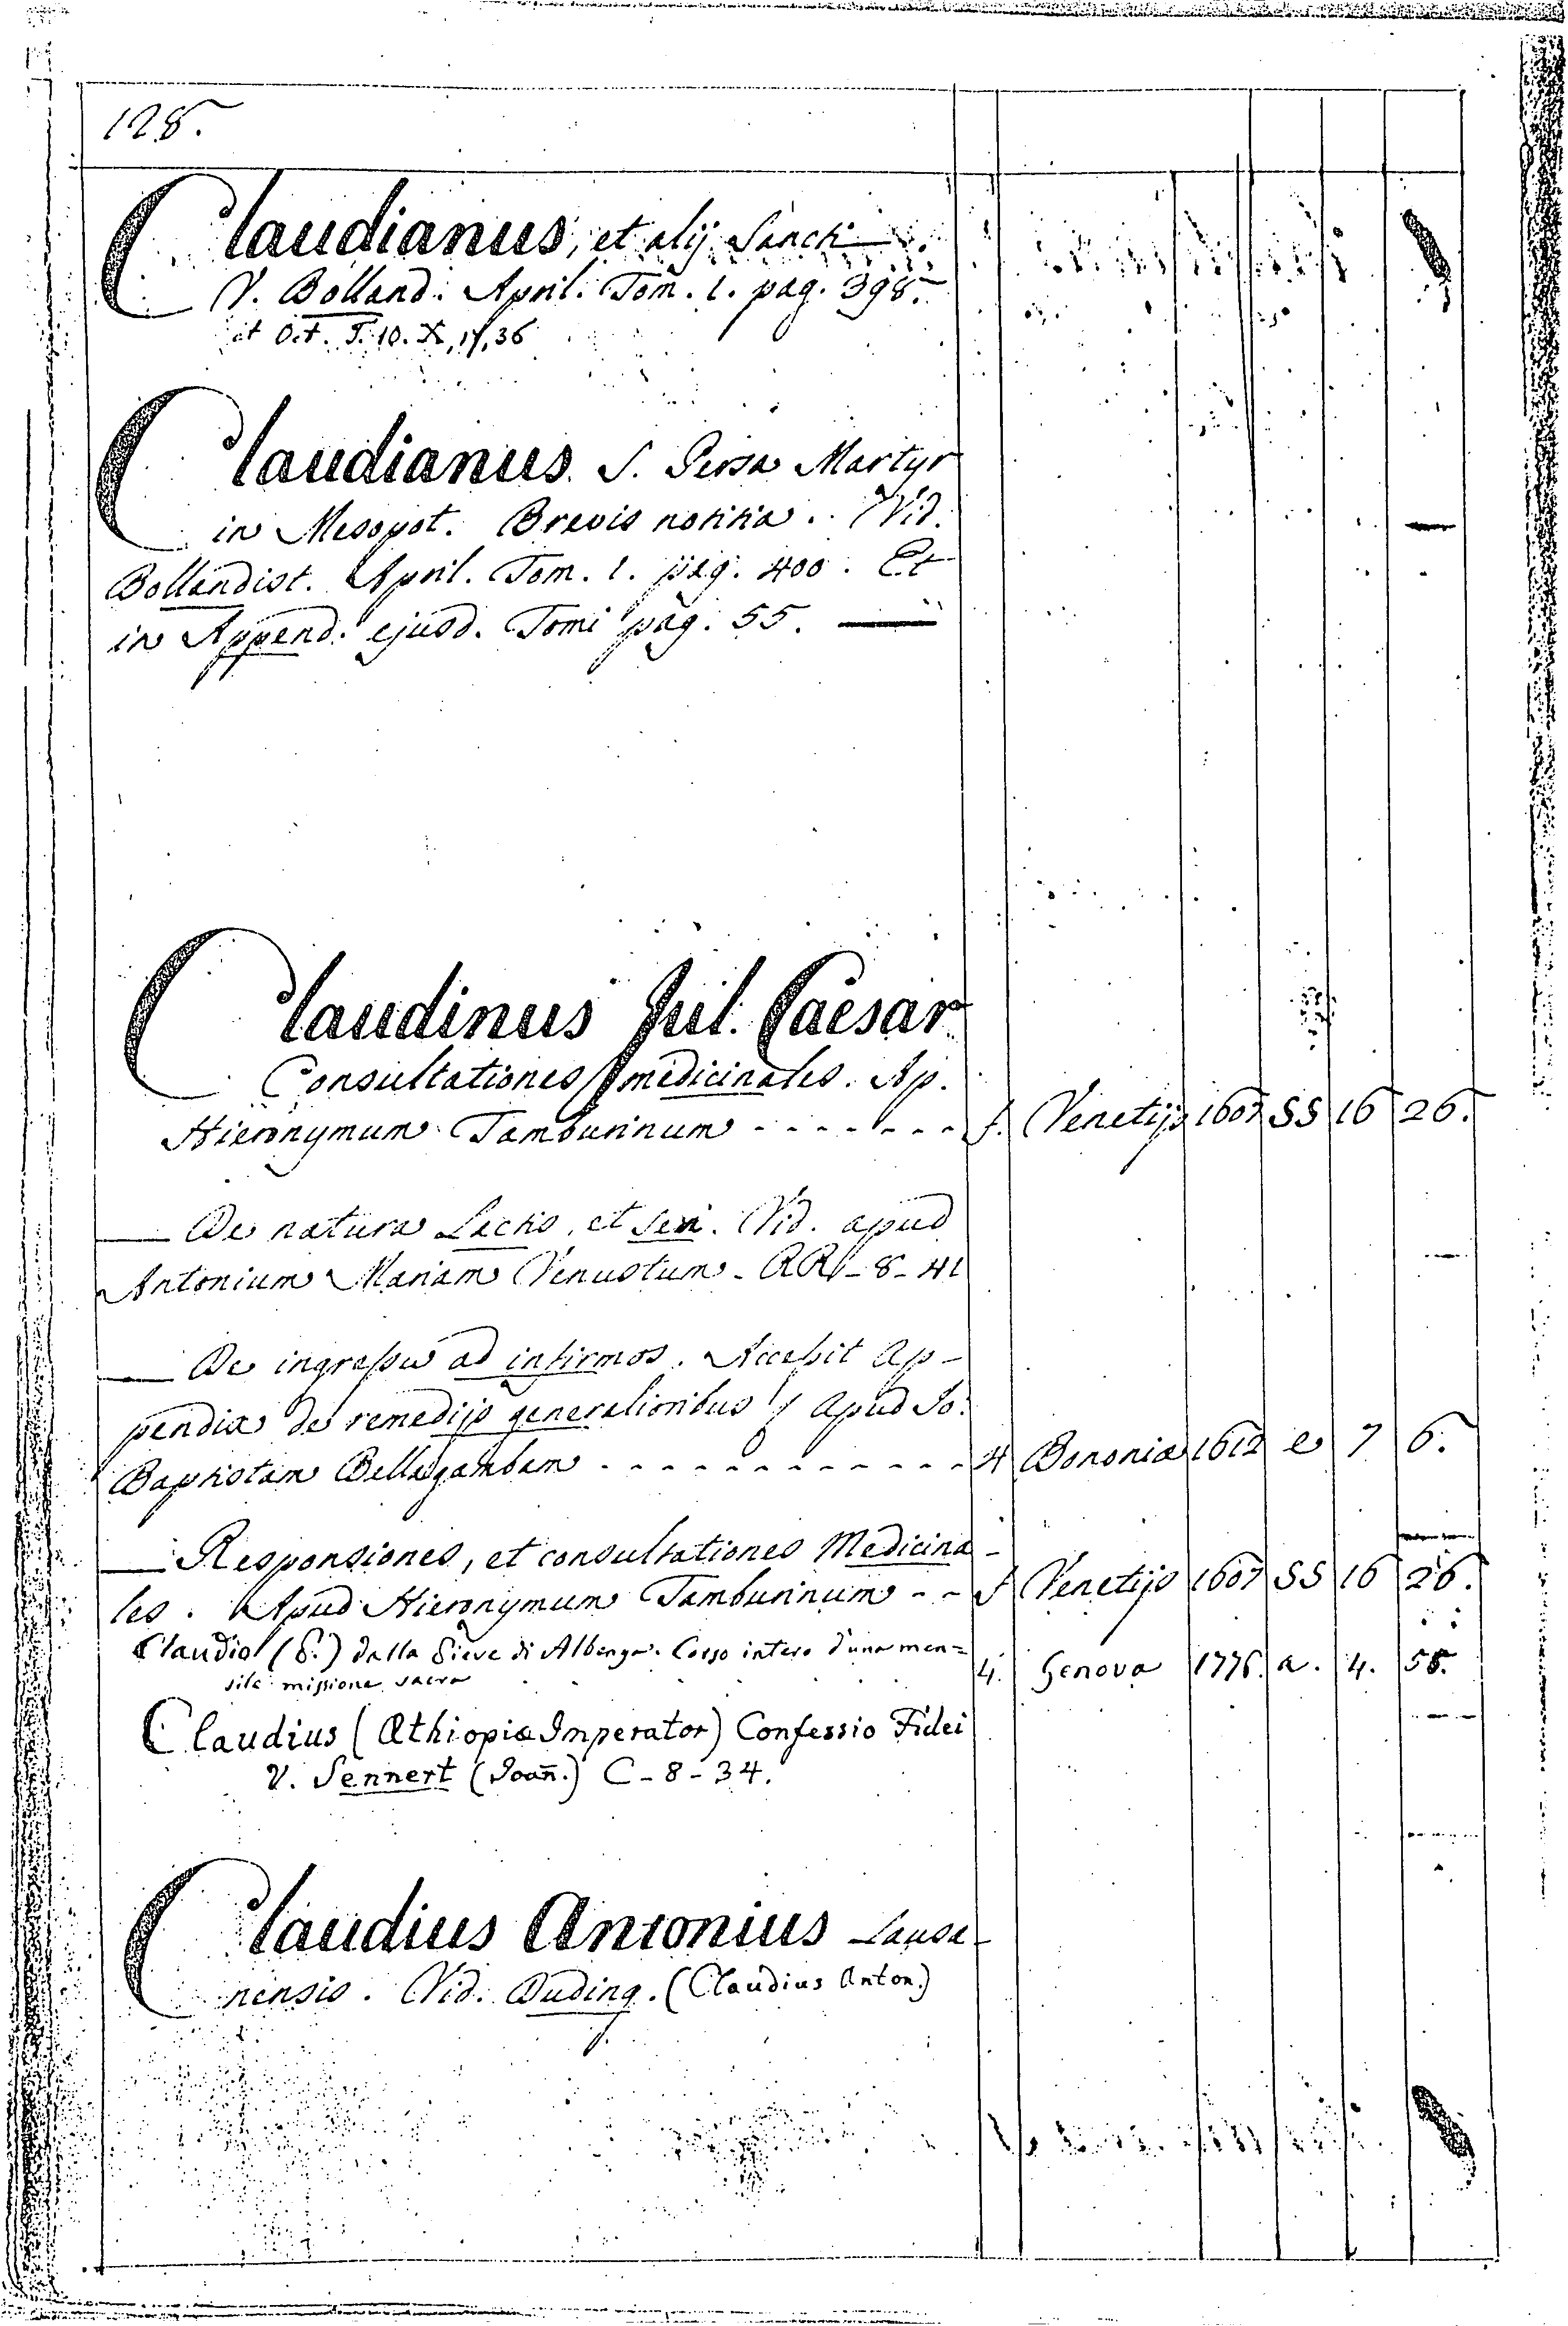 128.
Claudianus, et alij Sancti
V. Bolland. April. Tom. 1. pag. 398.
et Oct. T. 10. X, 17, 36
Claudianus. S. Persa Martyr
in Mesopot. Brevis notitia. Vid.
Bollandist. April. Tom. 1. pag. 400. Et
in Append. ejusd. Tomi pag. 55.
Claudinus Jul. Caesar
Consultationes medicinales. Ap.
Hieronymum Tamburinum - - - - - - - f. Venetijs 1607 SS 16 26.
— De natura Lactis, et seri. Vid. apud
Antonium Mariam Venustum - RR - 8 - 41
— De ingressu ad infirmos. Accessit Ap-
pendix de remedijs generalioribus / apud Jo.
Baptistam Bellagambam - - - - - - - - - - - - 4 Bononiæ 1612 e 7 6.
— Responsiones, et consultationes Medicina-
les. Apud Hieronymum Tamburinum - - f Venetijs 1607 SS 16 26.
Claudio (P.) dalla Pieve di Albenga. Corso intero d'una men=
sile missione sacra 4. Genova 1776. a. 4. 58.
Claudius (Æthiopiæ Imperator) Confessio Fidei
V. Sennert (Joañ.) C - 8 - 34.
Claudius Antonius Lausa-
nensis. Vid. Duding. (Claudius Anton.)